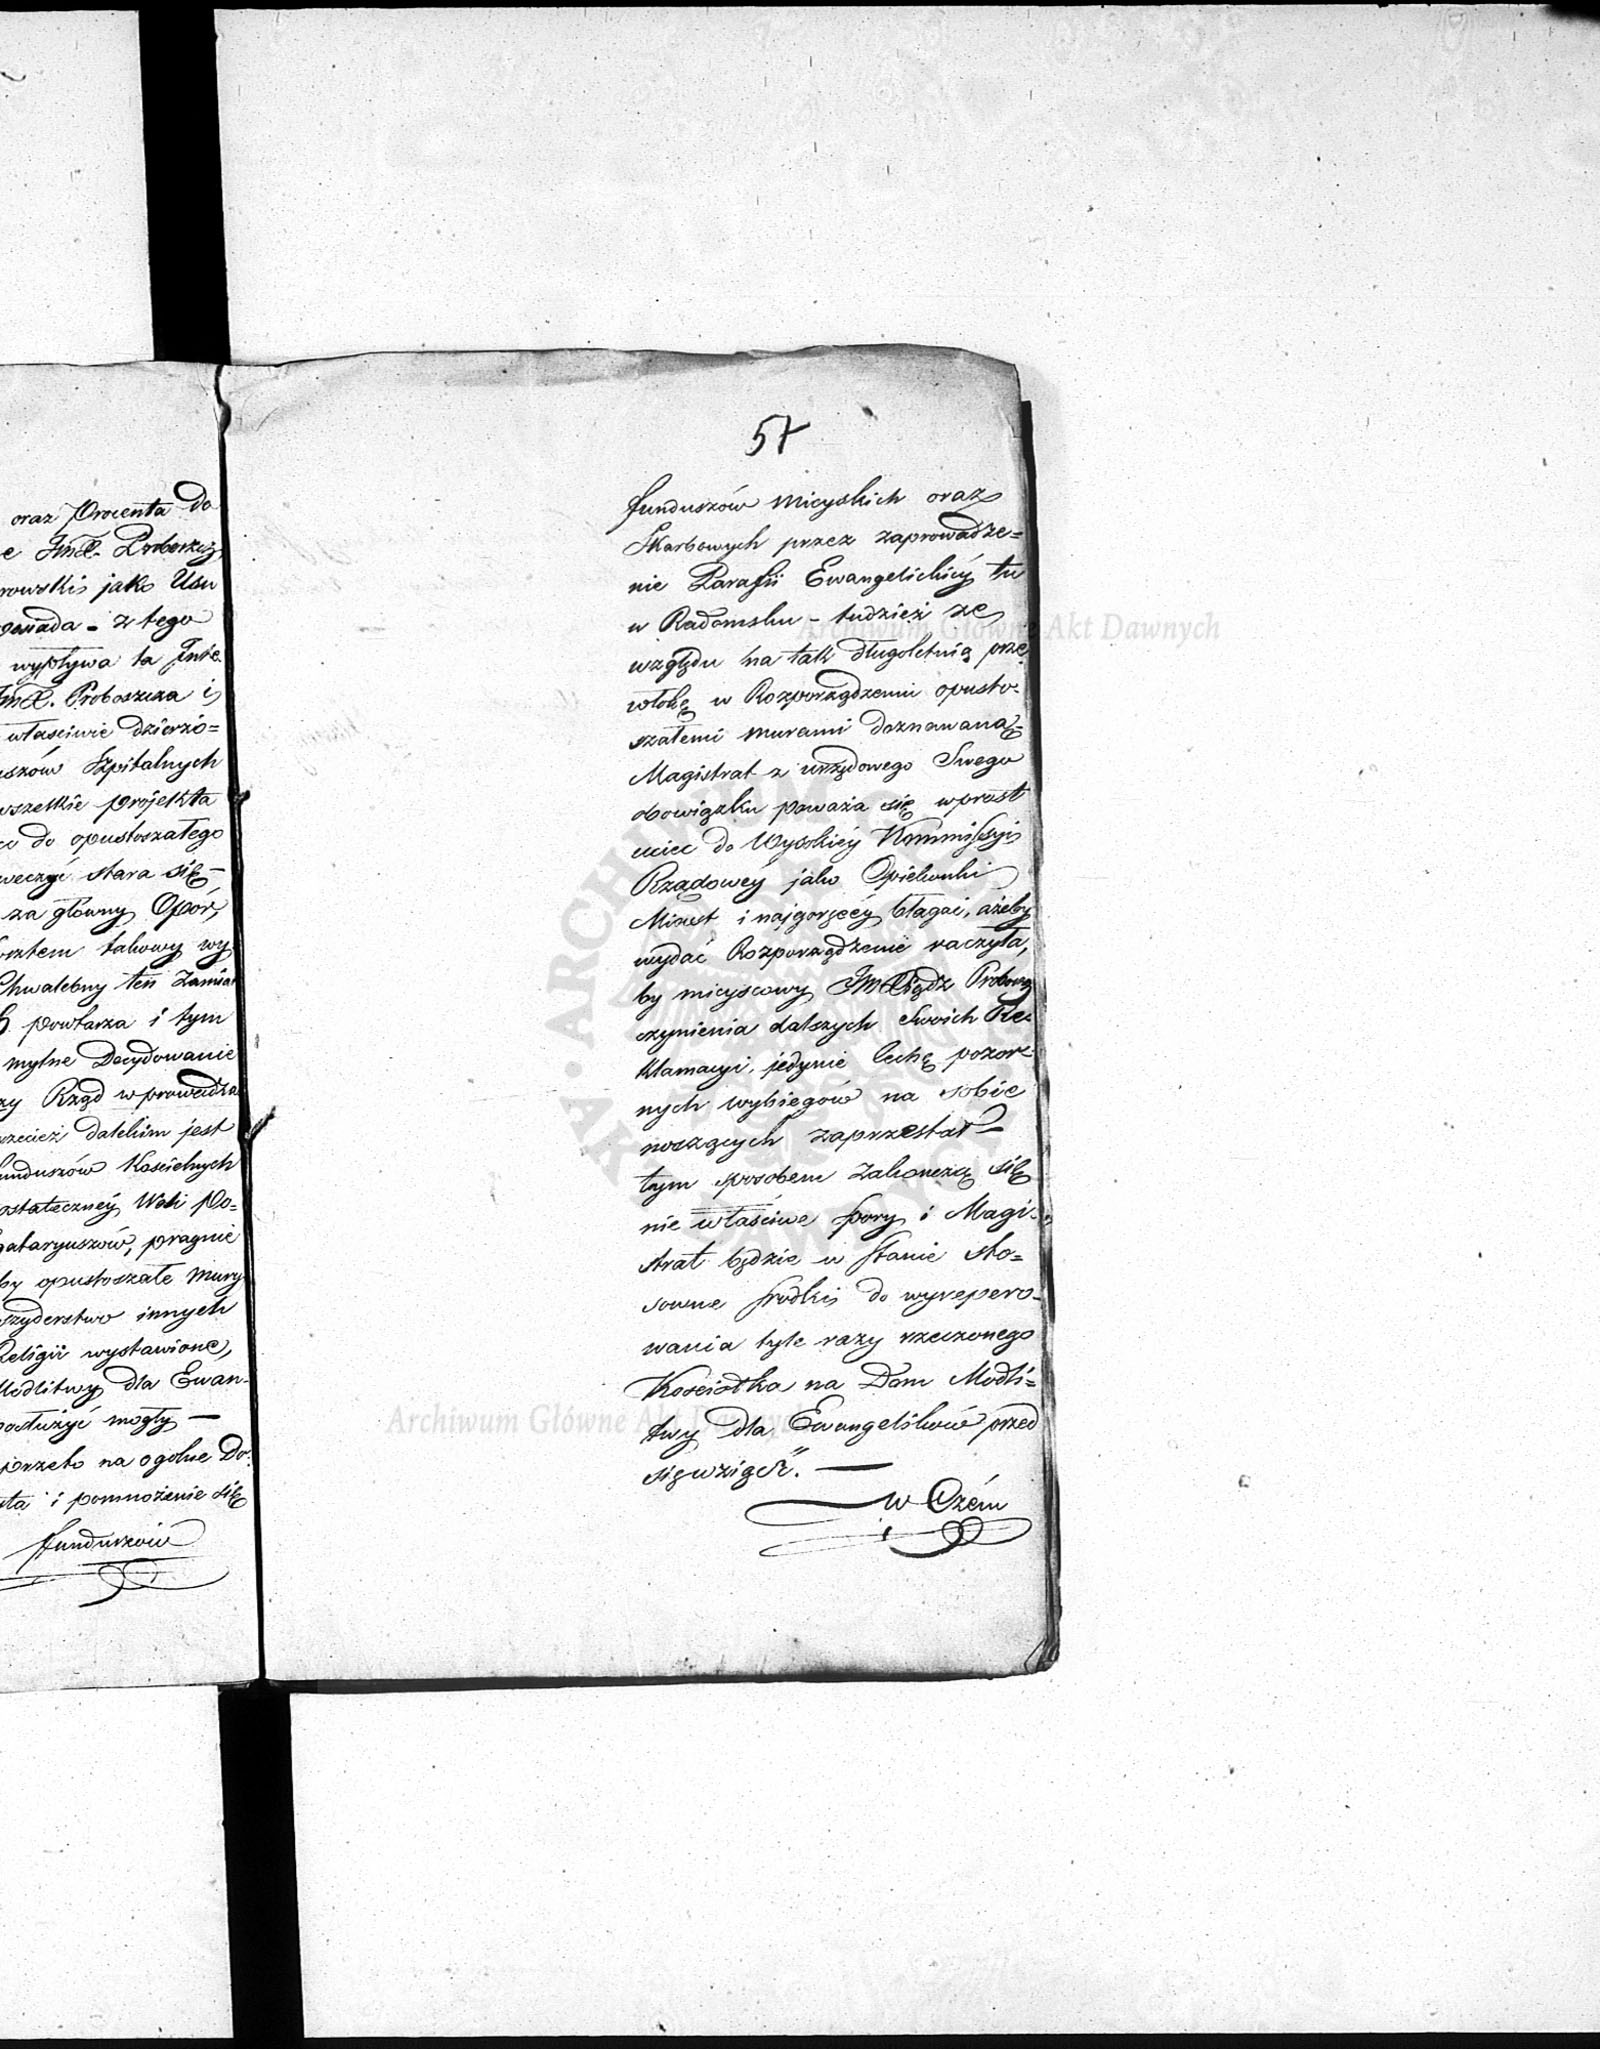 oraz Procenta do
e JmX. Proboszcz
rowski jako Usu
posiada - z tego
wypływa ta Inte-
JmX. Proboszcza i
właściwie dzierżo=
uszów Szpitalnych
wszelkie projekta
co do opustoszałego
weczyć stara się -
za główny Opór,
takowy wy
Chwalebny ten Zamiar
powtarza i tym
mylne Decydowanie
zy Rząd wprowadza
rzecież dalekim jest
unduszów Kościelnych
ostateczney Woli Po=
gataryuszów, pragnie
by opustoszałe Mury
szyderstwo innych
Religii wystawione,
Modlitwy dla Ewan-
posłużyć mogły —
przeto na ogólne Do-
ta i pomnożenie się
funduszów
57
funduszów Mieyskich oraz
Skarbowych przez zaprowadze=
nie Parafii Ewangelickiéy tu
w Radomsku - tudzież ze
względu na tak długoletnią prze
włokę w Rozporządzeniu opusto-
szałemi murami doznawaną -
Magistrat z urzędowego Swego
obowiązku poważa się wprost
uciec do Wysokiéy Kommissyi
Rządowéy jako Opiekunki
Miast i najgoręcéy błagać, ażeby
wydać Rozporządzenie raczyła,
by mieyscowy JmXiądz Proboszcz
czynienia dalszych Swoich Re-
klamacyi, jedynie cechę pozor-
nych wybiegów na sobie
noszących zaprzestał -
tym sposobem zakończą się
nie właściwe spory i Magi-
strat będzie w stanie sto=
sowne środki do wyrepero-
wania tyle razy rzeczonego
Kościołka na Dom Modli=
twy dla Ewangelików przed
sięwziąść. —
w Czém
Archiwum Główne Akt Dawnych
Archiwum Główne Akt Dawnych